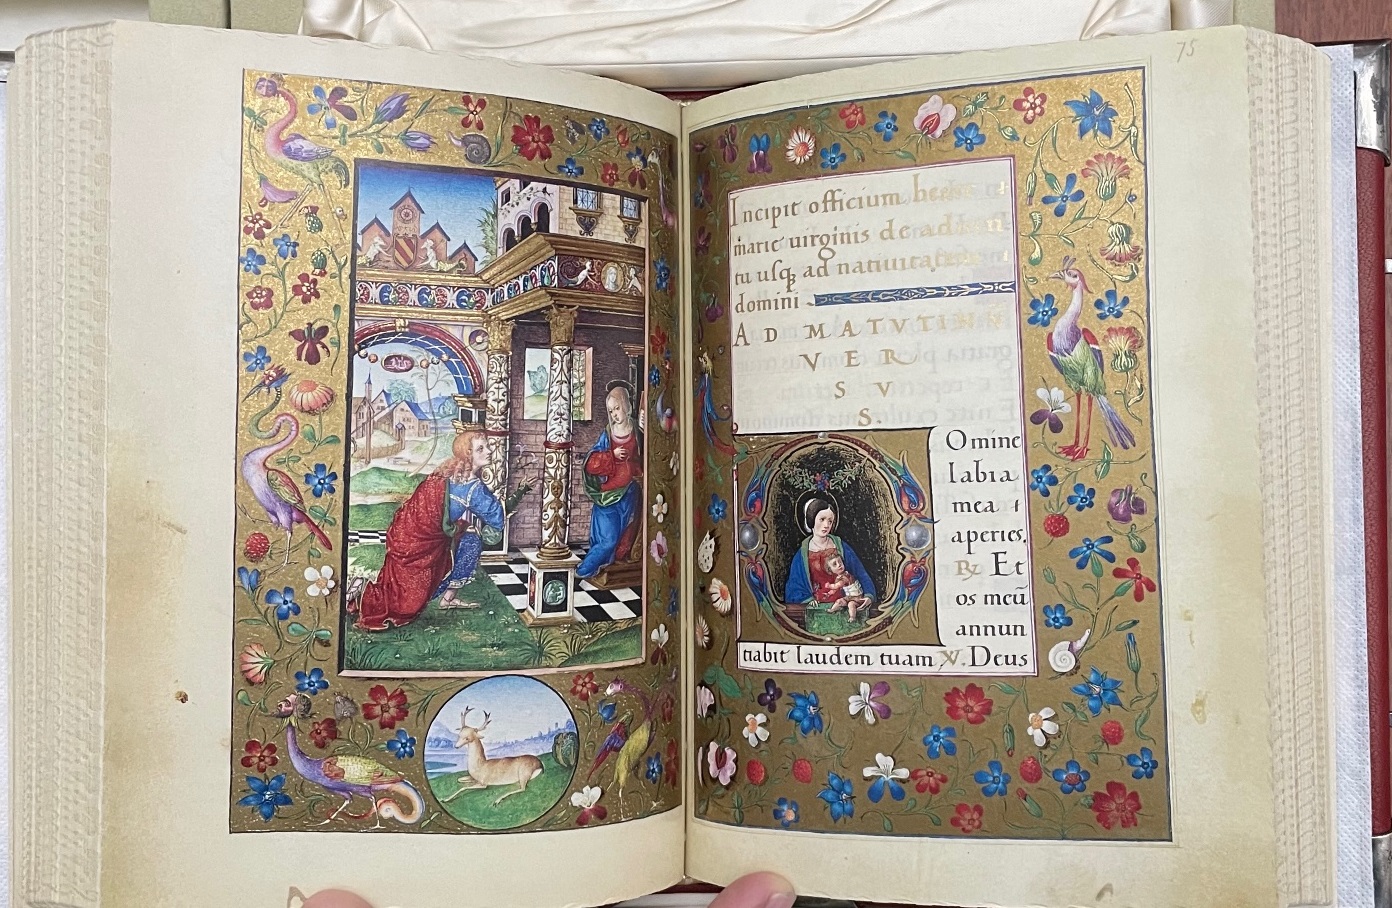 75
Incipit officium beate
marie virginis de aduen
tu usqȝ ad natiuitatem
domini
AD MATVTINV
VER
S V
S.
Omine
labia
mea
aperies.
℟ Et
os meū
annun
tiabit laudem tuam ℣. Deus